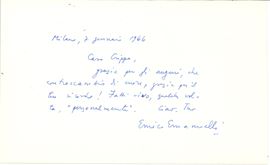 Milano, 7 gennaio 1966
Caro Crippa,
grazie per gli auguri, che
contraccambio di cuore, grazie per il
tuo ricordo! Fatti vivo, qualche vol-
ta, "personalmente". Ciao. Tuo
Enrico Emanuelli